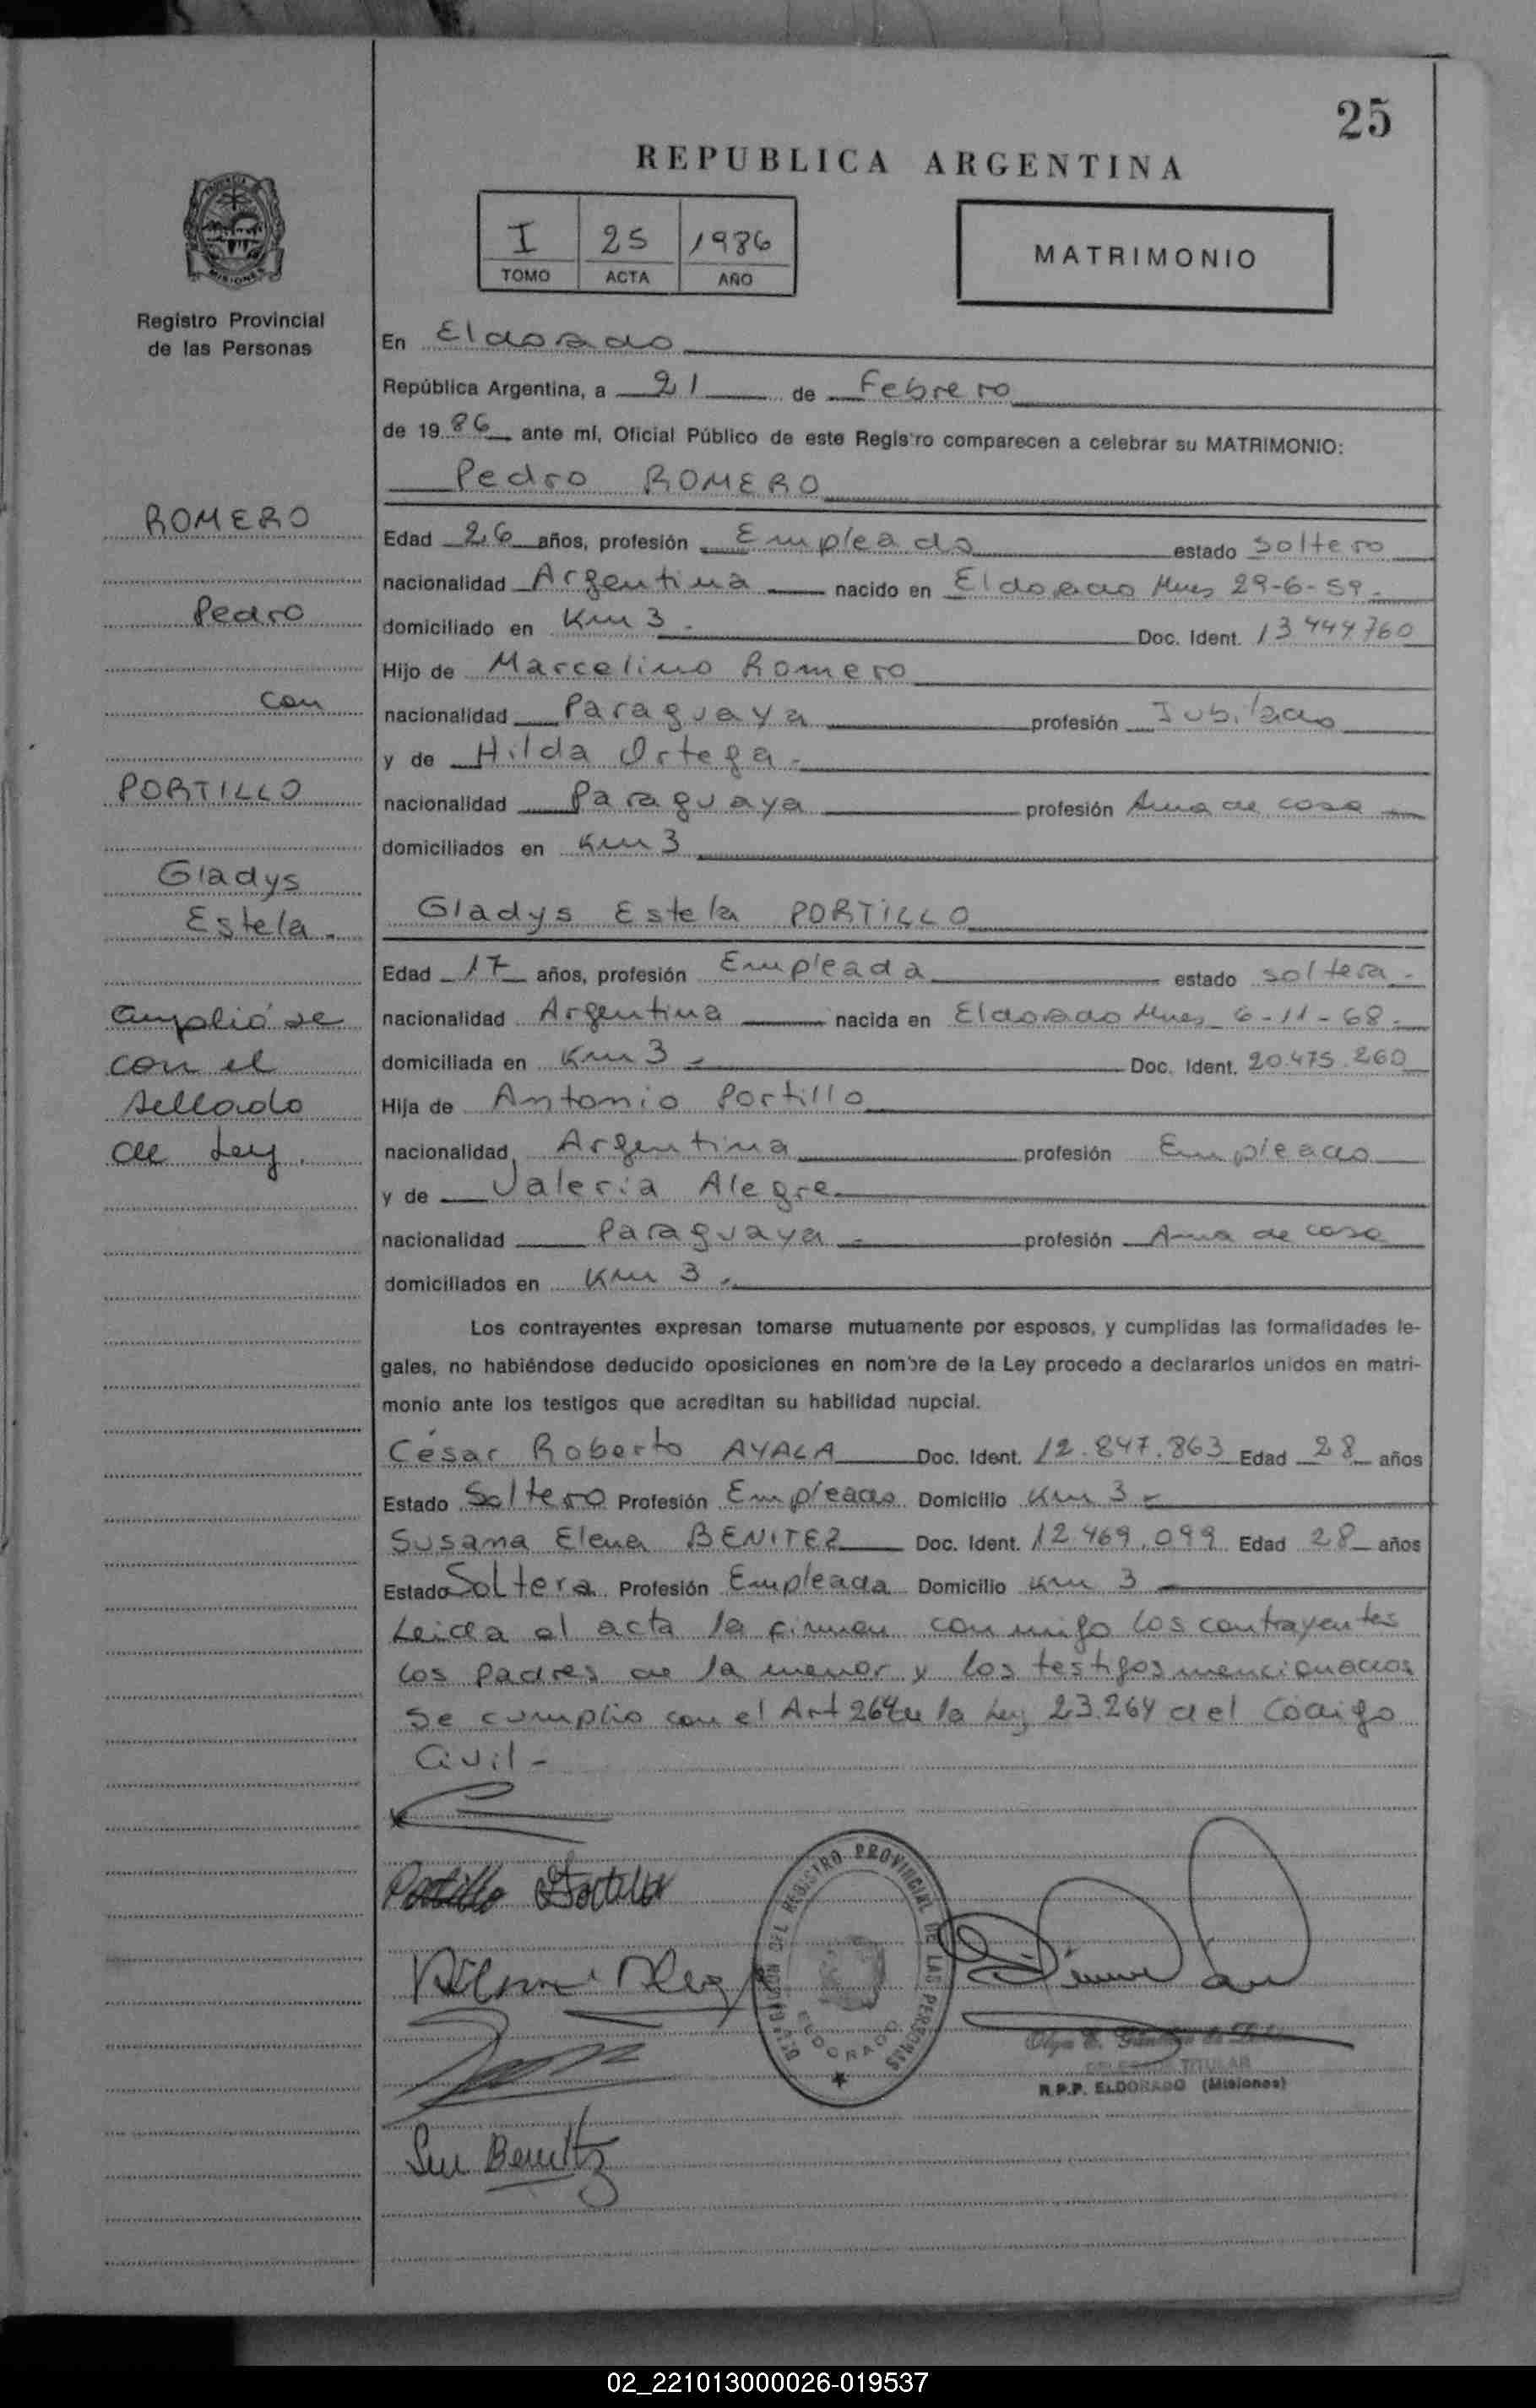 25
REPUBLICA ARGENTINA
I 25 1986
TOMO ACTA AÑO
MATRIMONIO
MISIONES
Registro Provincial
de las Personas
En Eldorado
República Argentina, a 21 de Febrero
de 1986 ante mí, Oficial Público de este Registro comparecen a celebrar su MATRIMONIO:
Pedro ROMERO
ROMERO
Pedro
con
PORTILLO
Gladys
Estela.
Cumplió se
con el
sellado
de Ley.
Edad 26 años, profesión Empleado estado soltero
nacionalidad Argentina nacido en Eldorado Mnes 29-6-59.
domiciliado en Km 3. Doc. Ident. 13444760
Hijo de Marcelino Romero
nacionalidad Paraguaya profesión Jubilado
y de Hilda Ortega.
nacionalidad Paraguaya profesión Ama de casa
domiciliados en Km 3
Gladys Estela PORTILLO
Edad 17 años, profesión Empleada estado soltera.
nacionalidad Argentina nacida en Eldorado Mnes 6-11-68.
domiciliada en Km 3. Doc. Ident. 20.475.260
Hija de Antonio Portillo
nacionalidad Argentina profesión Empleado
y de Valeria Alegre
nacionalidad Paraguaya. profesión Ama de casa
domiciliados en Km 3.
Los contrayentes expresan tomarse mutuamente por esposos, y cumplidas las formalidades le-
gales, no habiéndose deducido oposiciones en nombre de la Ley procedo a declararlos unidos en matri-
monio ante los testigos que acreditan su habilidad nupcial.
César Roberto AYALA Doc. Ident. 12.847.863 Edad 28 años
Estado Soltero Profesión Empleado Domicilio Km 3
Susana Elena BENITEZ Doc. Ident. 12.469.099 Edad 28 años
Estado Soltera Profesión Empleada Domicilio Km 3
Leida el acta la firman conmigo los contrayentes
los padres de la menor y los testigos mencionados
Se cumplio con el Art 264 de la Ley 23.264 del Codigo
Civil-
Portillo Portillo
DELEGACION DEL REGISTRO PROVINCIAL DE LAS PERSONAS
ELDORADO
Olga E.
DELEGADA TITULAR
R.P.P. ELDORADO (Misiones)
Benitez
02_221013000026-019537